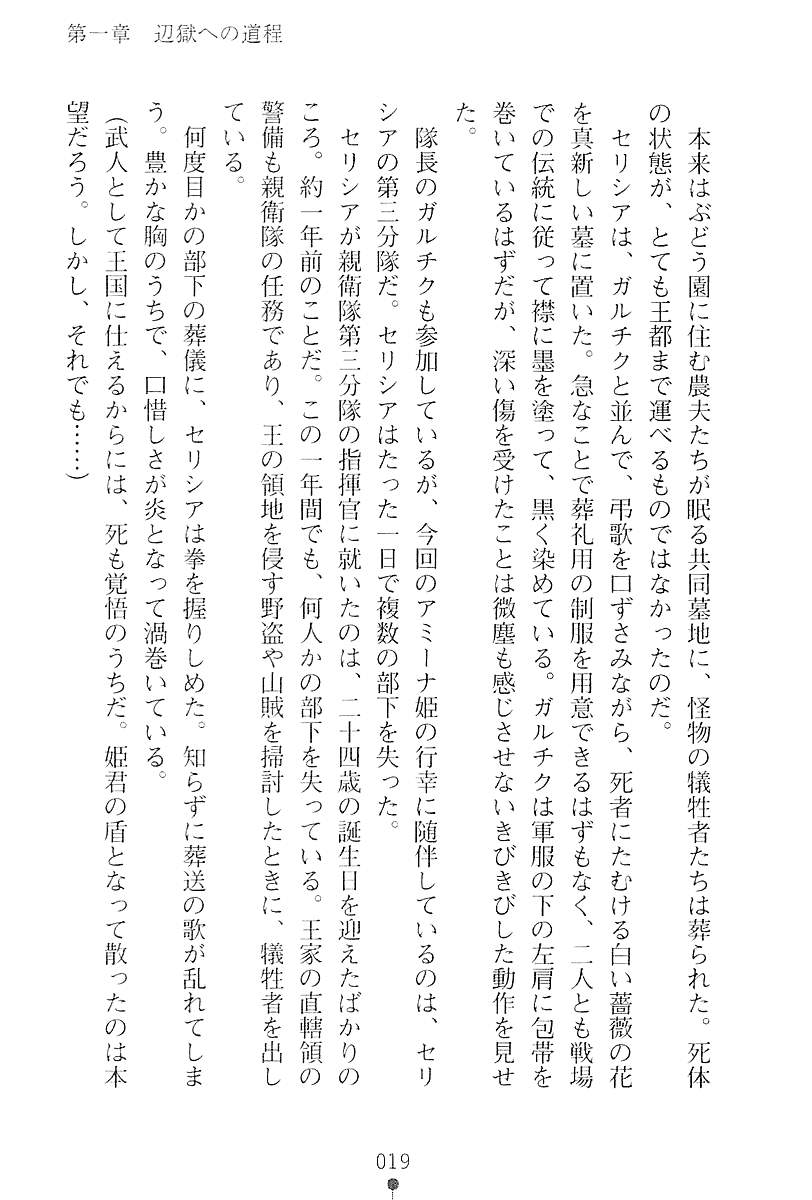 第一章　辺獄への道程
　本来はぶどう園に住む農夫たちが眠る共同墓地に、怪物の犠牲者たちは葬られた。死体
の状態が、とても王都まで運べるものではなかったのだ。
　セリシアは、ガルチクと並んで、弔歌を口ずさみながら、死者にたむける白い薔薇の花
を真新しい墓に置いた。急なことで葬礼用の制服を用意できるはずもなく、二人とも戦場
での伝統に従って襟に墨を塗って、黒く染めている。ガルチクは軍服の下の左肩に包帯を
巻いているはずだが、深い傷を受けたことは微塵も感じさせないきびきびした動作を見せ
た。
　隊長のガルチクも参加しているが、今回のアミーナ姫の行幸に随伴しているのは、セリ
シアの第三分隊だ。セリシアはたった一日で複数の部下を失った。
　セリシアが親衛隊第三分隊の指揮官に就いたのは、二十四歳の誕生日を迎えたばかりの
ころ。約一年前のことだ。この一年間でも、何人かの部下を失っている。王家の直轄領の
警備も親衛隊の任務であり、王の領地を侵す野盗や山賊を掃討したときに、犠牲者を出し
ている。
　何度目かの部下の葬儀に、セリシアは拳を握りしめた。知らずに葬送の歌が乱れてしま
う。豊かな胸のうちで、口惜しさが炎となって渦巻いている。
（武人として王国に仕えるからには、死も覚悟のうちだ。姫君の盾となって散ったのは本
望だろう。しかし、それでも……）
019